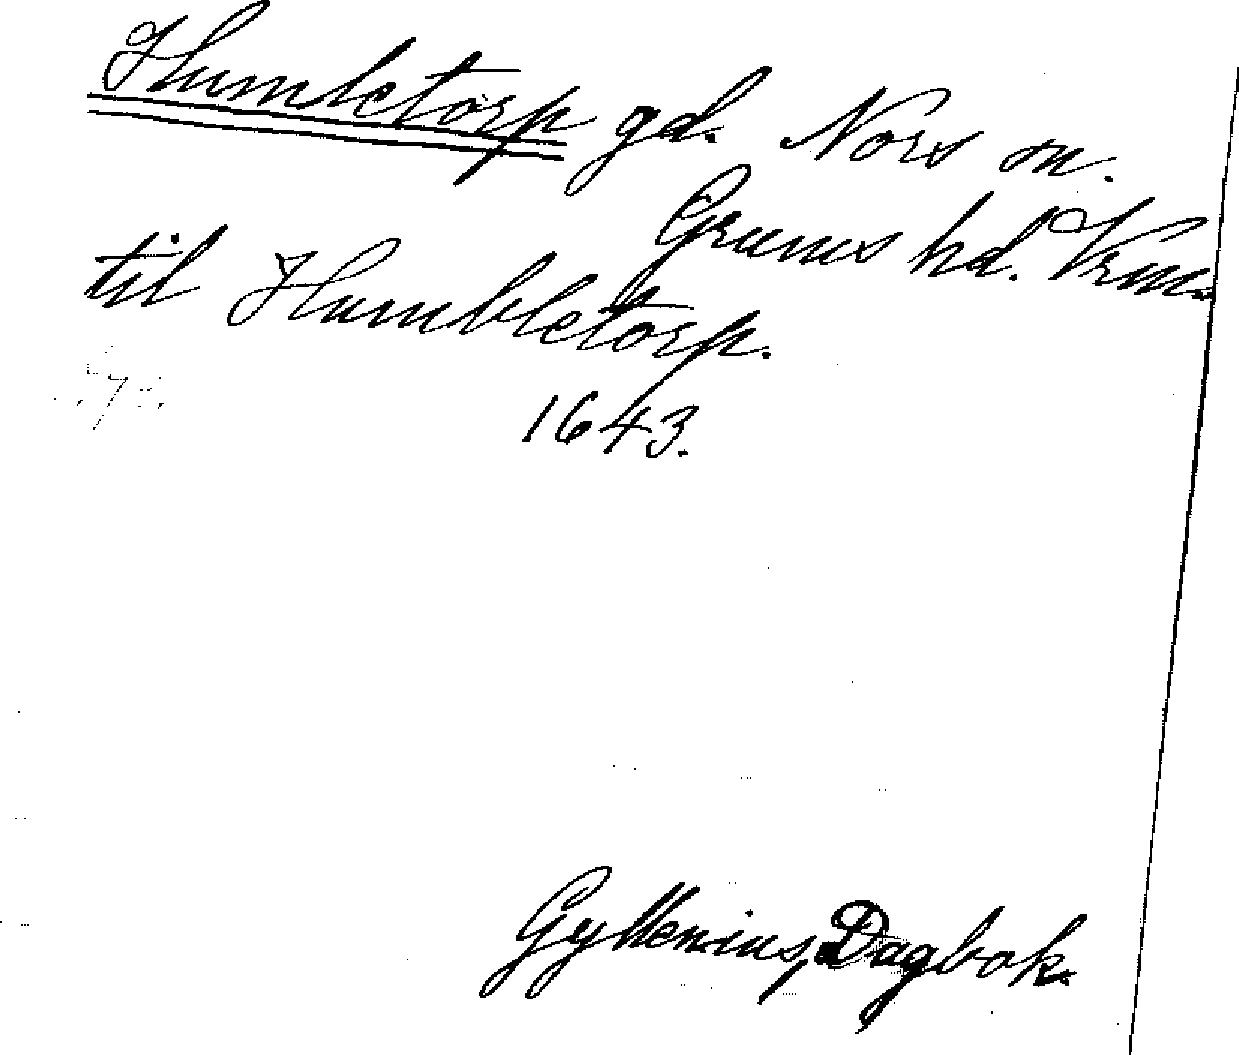 Humletorp gd. Nors sn.
Grums hd. Vrm.
til Humbletorp.
1643.
Gyllenius, Dagbok.